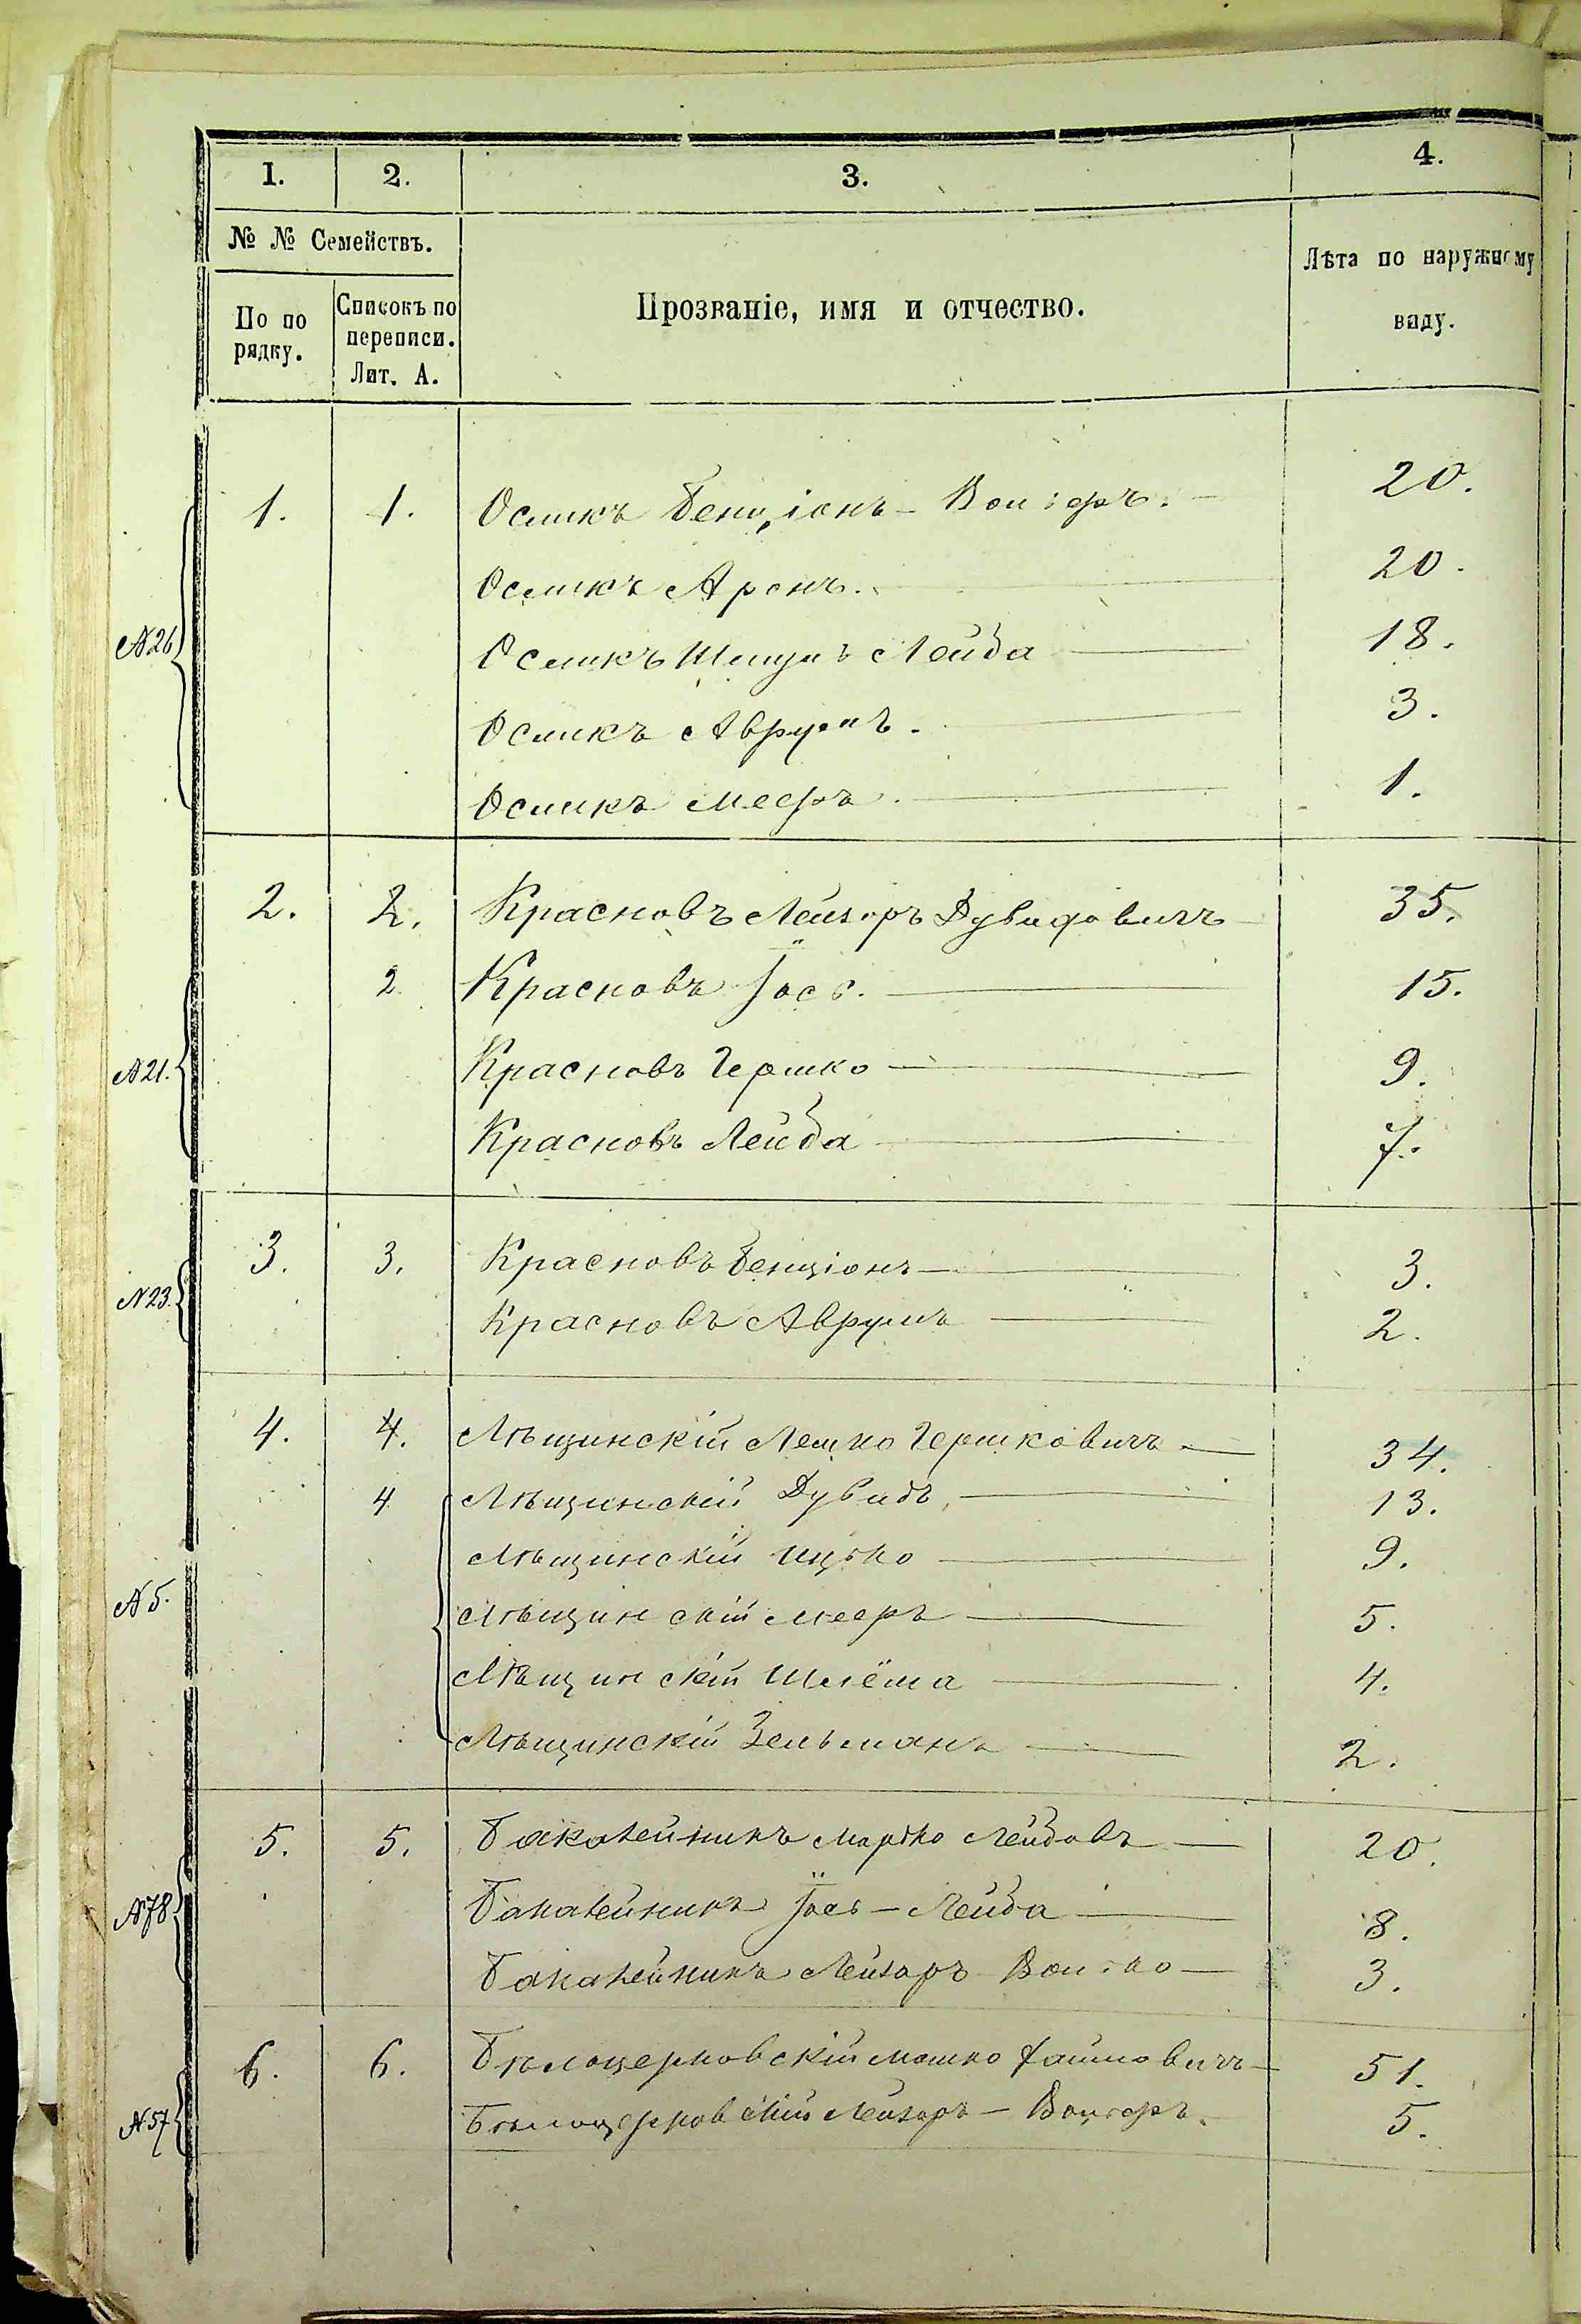 1. 2. 3. 4.
№ № Семействъ.
По по рядку.
Списокъ по переписи. Лит. А.
Прозваніе, имя и отчество.
Лѣта по наружному виду.
№26
1. 1. Осликъ Бенціонъ - Вольфъ. 20.
Осликъ Аронъ. 20.
Осликъ Шмулъ Лейба 18.
Осликъ Аврумъ. 3.
Осликъ Мееръ. 1.
№21.
2. 2. Красновъ Лейзоръ Дувидовичъ 35.
2 Красновъ Іось. 15.
Красновъ Гершко 9.
Красновъ Лейба 7.
№23.
3. 3. Красновъ Бенціонъ 3.
Красновъ Аврумъ 2.
№5.
4. 4. Лѣщинскій Лешко Гершковичъ 34.
4 Лѣщинскій Дувидъ 13.
Лѣщинскій Ицько 9.
Лѣщинскій Мееръ 5.
Лѣщинскій Шлёма 4.
Лѣщинскій Зельманъ 2.
№78
5. 5. Бакалейникъ Марько Лейбовъ 20.
Бакалейникъ Іось - Лейба 8.
Бакалейникъ Лейзоръ Волько 3.
№57
6. 6. Бѣлоцерковскій Мошко Файновичъ 51.
Бѣлоцерковскій Лейзоръ - Вольфъ. 5.